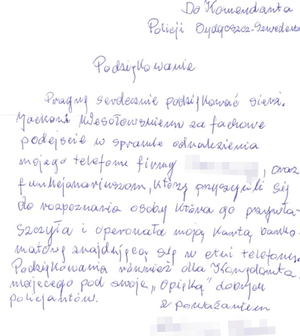 Do Komendanta
Policji Bydgoszcz-Szwederowo
Podziękowanie
Pragnę serdecznie podziękować sierż.
Jackowi Wesołowskiemu za fachowe
podejście w sprawie odnalezienia
mojego telefonu firmy , oraz
funkcjonariuszom, którzy przyczynili się
do rozpoznania osoby która go przywła-
szczyła i operowała moją kartą banko-
matową znajdującą się w etui telefonu.
Podziękowania również dla Komendanta
mającego pod swoją „opieką" dobrych
policjantów.
z poważaniem